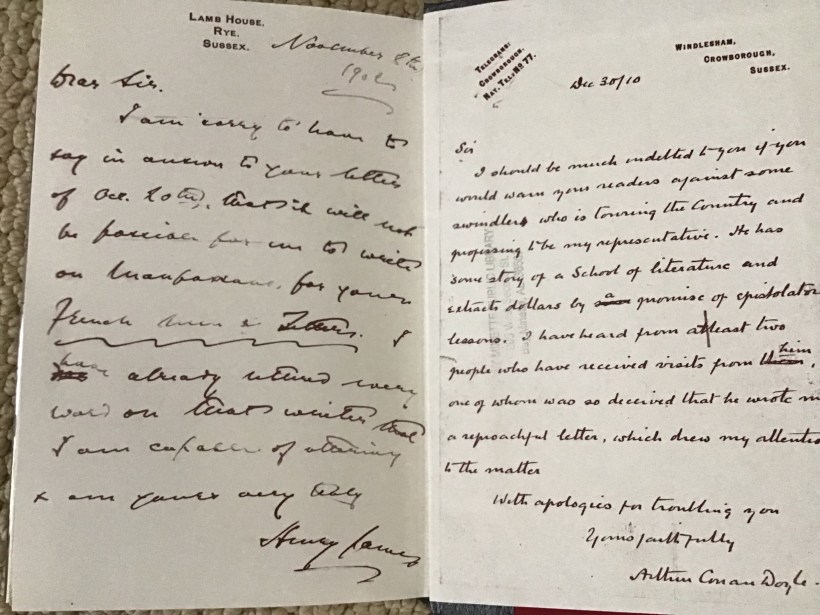 LAMB HOUSE.
RYE.
SUSSEX.
November 8th
1902
Dear Sir.
I am sorry to have to
say in answer to your letter
of Oct. 20th, that it will not
be possible for me to write
on Maupassant, for your
French Men & Letters. I
have already uttered every
word on that writer that
I am capable of uttering
& am yours very truly
Henry James
TELEGRAMS:
CROWBOROUGH.
NAT. TEL: NO. 77.
WINDLESHAM,
CROWBOROUGH,
SUSSEX.
Dec 30/10
Sir
I should be much indebted to you if you
would warn your readers against some
swindler who is touring the Country and
professing to be my representative. He has
some story of a School of literature and
extracts dollars by a promise of epistolator
lessons. I have heard from at least two
people who have received visits from him,
one of whom was so deceived that he wrote m
a reproachful letter, which drew my attentio
to the matter
With apologies for troubling you
Yours faithfully
Arthur Conan Doyle.